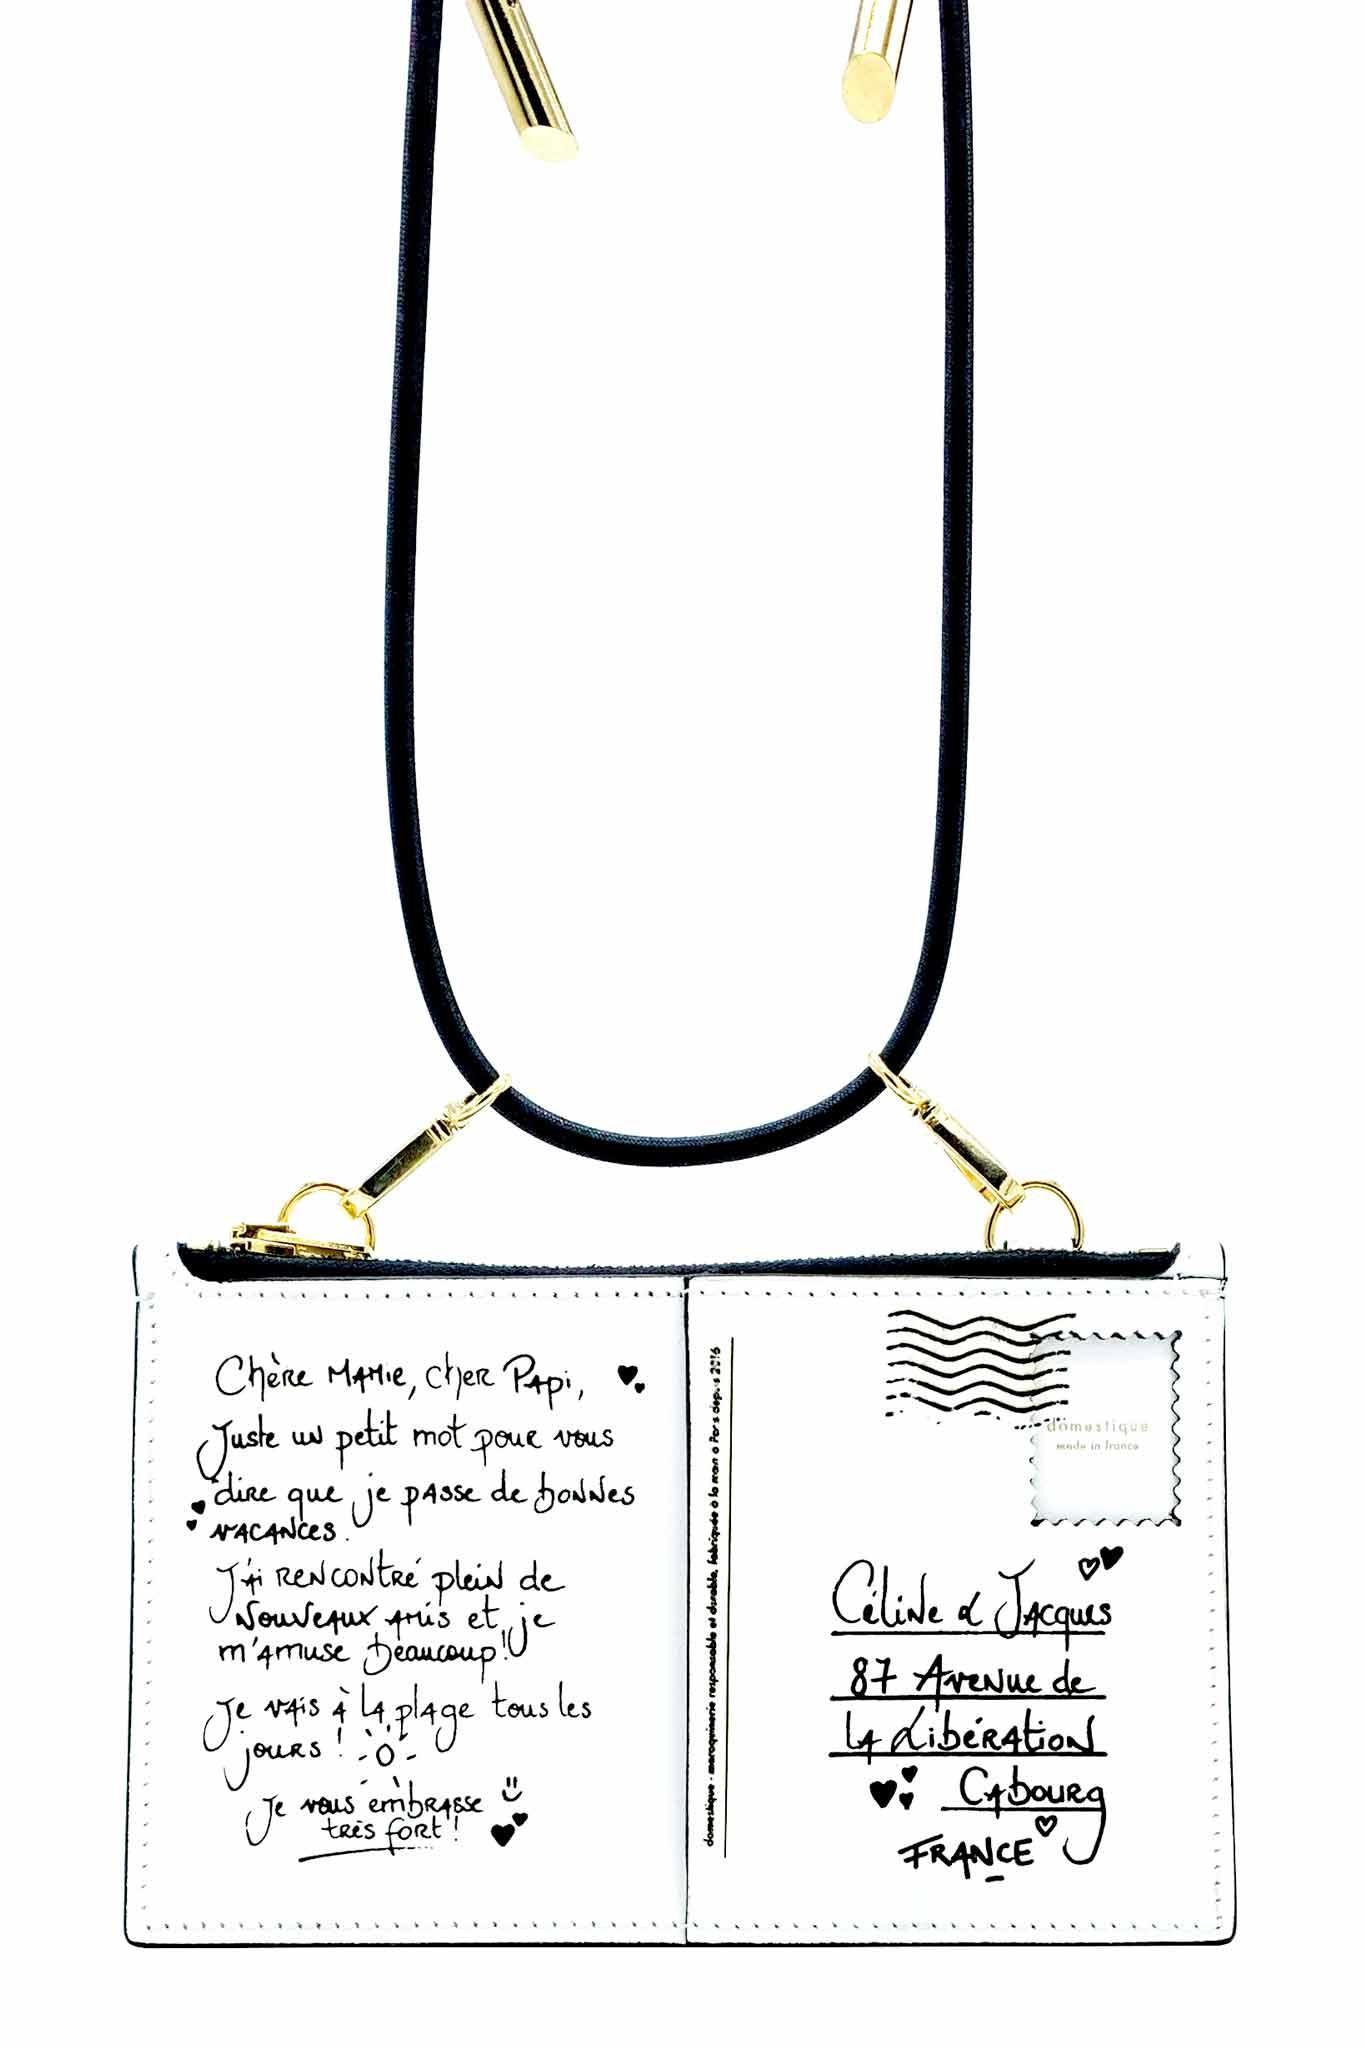 Chère Mamie, cher Papi,
Juste un petit mot pour vous
dire que je passe de bonnes
vacances.
J'ai rencontré plein de
nouveaux amis et je
m'amuse beaucoup !
Je vais à la plage tous les
jours !
Je vous embrasse
très fort !
domestique - maroquinerie responsable et durable, fabriquée à la main à Paris depuis 2016
domestique
made in france
Céline & Jacques
87 Avenue de
la Libération
Cabourg
FRANCE